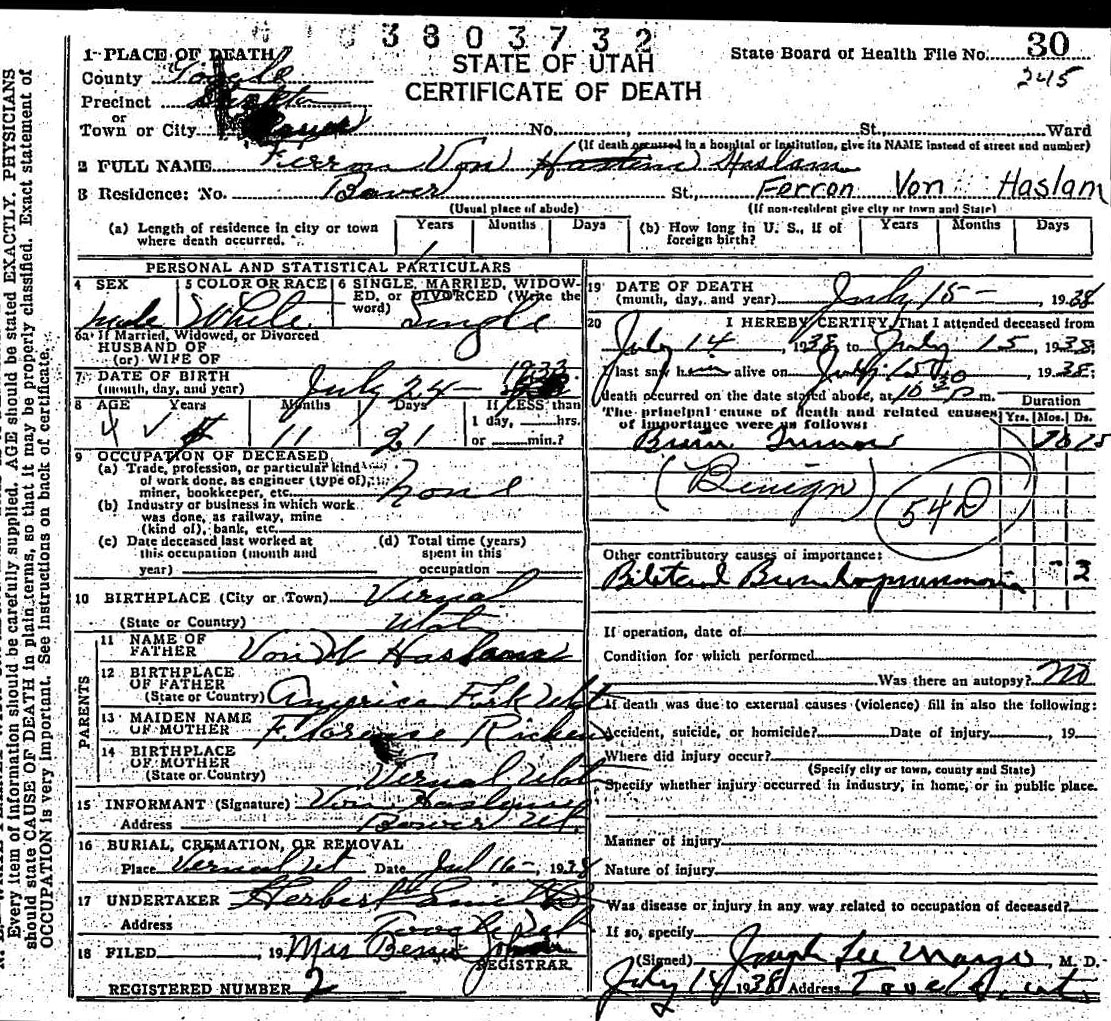 3803732
1 PLACE OF DEATH
STATE OF UTAH
State Board of Health File No. 30
245
County Tooele
CERTIFICATE OF DEATH
Precinct Stockton
or
Town or City No. , St., Ward
(If death occurred in a hospital or institution, give its NAME instead of street and number)
2 FULL NAME Ferron Von Haslam
3 Residence: No. Bauer St., Ferron Von Haslam
(Usual place of abode) (If non-resident give city or town and State)
(a) Length of residence in city or town where death occurred. Years Months Days
(b) How long in U. S., if of foreign birth? Years Months Days
PERSONAL AND STATISTICAL PARTICULARS
4 SEX male
5 COLOR OR RACE White
6 SINGLE, MARRIED, WIDOWED, or DIVORCED (Write the word) Single
6a If Married, Widowed, or Divorced
HUSBAND OF
(or) WIFE OF
7 DATE OF BIRTH
(month, day, and year) July 24- 1933
8 AGE Years Months Days If LESS than
4 11 21 1 day, hrs.
or min.?
9 OCCUPATION OF DECEASED
(a) Trade, profession, or particular kind
of work done, as engineer (type of),
miner, bookkeeper, etc. none
(b) Industry or business in which work
was done, as railway, mine
(kind of), bank, etc.
(c) Date deceased last worked at
this occupation (month and
year)
(d) Total time (years)
spent in this
occupation
10 BIRTHPLACE (City or Town) Vernal
(State or Country) Utah
PARENTS
11 NAME OF
FATHER Von W Haslam
12 BIRTHPLACE
OF FATHER
(State or Country) America Fork Utah
13 MAIDEN NAME
OF MOTHER Florense
14 BIRTHPLACE
OF MOTHER
(State or Country) Vernal Utah
15 INFORMANT (Signature) Von Haslam
Address Bauer Ut.
16 BURIAL, CREMATION, OR REMOVAL
Place Vernal Ut Date Jul 16-, 1938
17 UNDERTAKER Herbert
Address Tooele
18 FILED , 19 Mrs Bessie
REGISTRAR
REGISTERED NUMBER 2
19 DATE OF DEATH
(month, day, and year) July 15- , 1938
20 I HEREBY CERTIFY, That I attended deceased from
July 14, 1938 to July 15, 1938,
I last saw him alive on July 15, 1938;
death occurred on the date stated above, at 10 30 P m.
The principal cause of death and related causes
of importance were as follows:
Duration
Yrs. Mos. Ds.
Brain Tumor
(Benign)
54D
Other contributory causes of importance:
Bilateral Bronchopneumonia - 2
If operation, date of
Condition for which performed
Was there an autopsy? No
If death was due to external causes (violence) fill in also the following:
Accident, suicide, or homicide? Date of injury , 19
Where did injury occur?
(Specify city or town, county and State)
Specify whether injury occurred in industry, in home, or in public place.
Manner of injury
Nature of injury
Was disease or injury in any way related to occupation of deceased?
If so, specify
(Signed) Joseph Lee , M. D.
July 1938 Address Tooele, Ut.
Every item of information should be carefully supplied. AGE should be stated EXACTLY. PHYSICIANS
should state CAUSE OF DEATH in plain terms, so that it may be properly classified. Exact statement of
OCCUPATION is very important. See instructions on back of certificate.